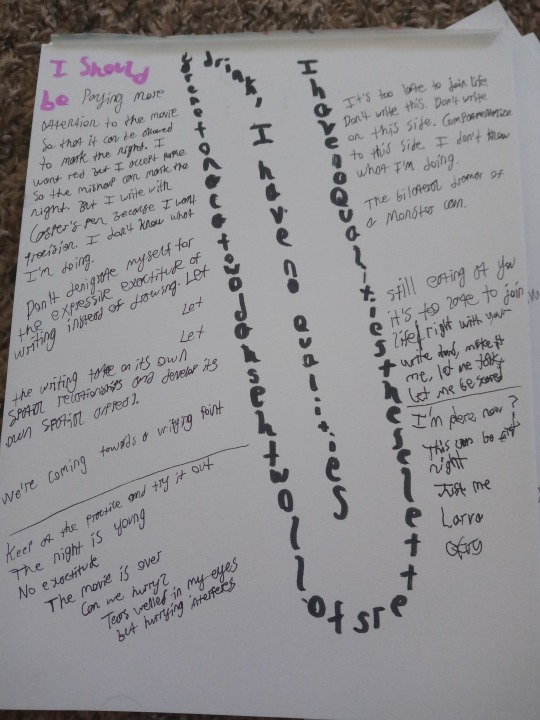 I Should
be Paying more
attention to the movie
so that it can be allowed
to mark the right. I
want red but I accept
So the mishap can mark the
right. But I write with
Casper's pen because I want
precision. I don't know what
I'm doing.
Don't denigrate myself for
the expressive exactitude of
writing instead of drawing. Let
Let
Let
the writing take on its own
spatial relationships and develop its
own spatial
We're coming towards a writing point
Keep at the practice and try it out
The night is young
No exactitude
The movie is over
Can we hurry?
Tears welled in my eyes
but hurrying interferes
drink, I have no qualities
I have no qualities these letters
It's too late to join life
Don't write this. Don't write
on this side. Compartmentalize
to this side I don't know
what I'm doing.
The bilateral dramas of
a monster can.
still eating at you
it's too large to join
life/right with your
write hand, make it
me, let me talk,
Let me be scared
I'm there now?
This can be first
right
Just me
Larva